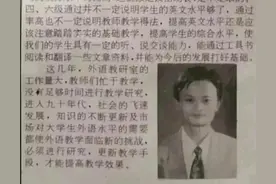 四、六级通过并不一定说明学生的英文水平够了，通过
率高也不一定说明教师教学得法，提高英文水平还是应
该注意踏踏实实的基础教学，提高学生的综合水平，使
我们的学生具有一定的听、说交谈能力，能通过工具书
阅读和翻译一些文章资料，并能为今后的发展打好基础。
这几年，外语教研室的
工作量大，教师们忙于教学，
没有足够时间进行教学研究，
进入九十年代，社会的飞速
发展，知识的不断更新及市
场对大学生外语水平的需要
都使外语教学面临新的挑战，
必须进行研究，更新教学手
段，才能提高教学效果。